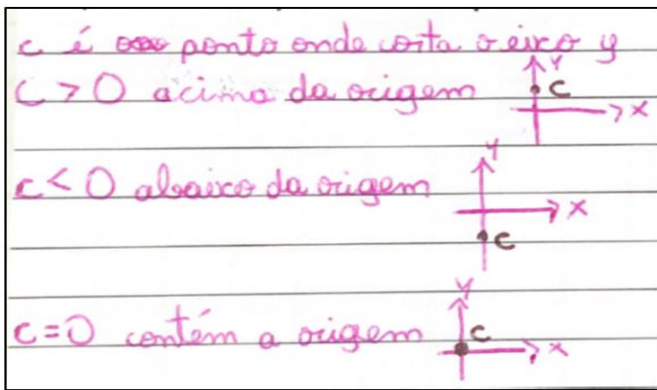 c é ponto onde corta o eixo y
C > 0 acima da origem
Y
C
X
c < 0 abaixo da origem
Y
X
C
c = 0 contém a origem
Y
C
X